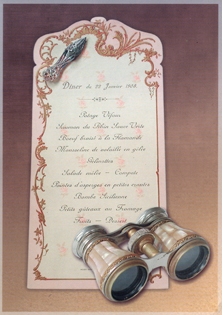 Dîner du 26 Janvier 1908.
Potage
Saumon du Rhin Sauce Verte
Bœuf braisé à la Flamande
Mousseline de volaille en gelée
Salade mêlée — Compote
Pointes d'asperges en petites croûtes
Bombe Sicilienne
Petits gâteaux au Fromage
Fruits — Dessert